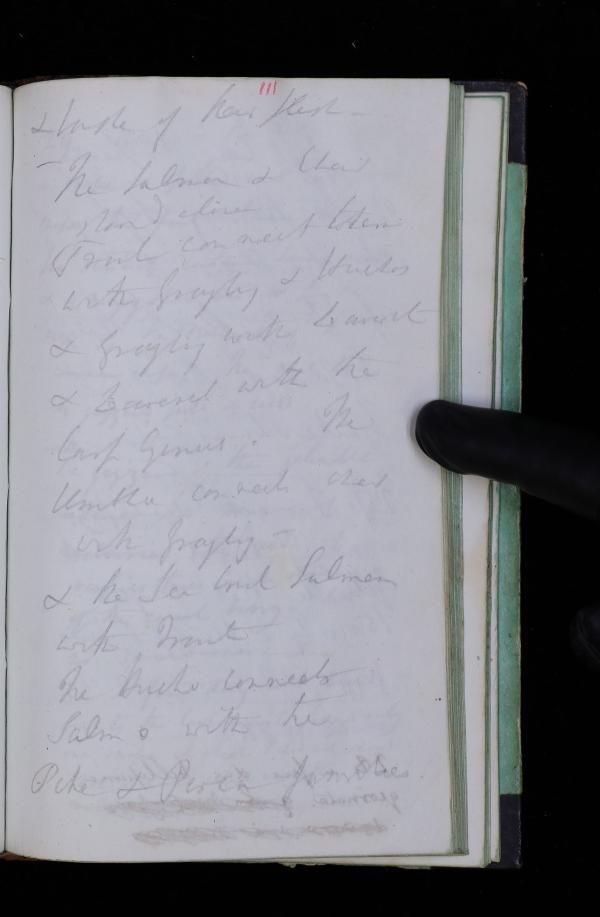 111
& taste of their flesh -
- The Salmon & Char
stand alone
Trout connect them
with grayling & Hucho
& grayling with Lavaret
& Lavaret with the
Carp Genus. The
Umbla connects char
with grayling -
& the Sea trout Salmon
with Trout
The Hucho connects
Salmo with the
Pike & Perch families